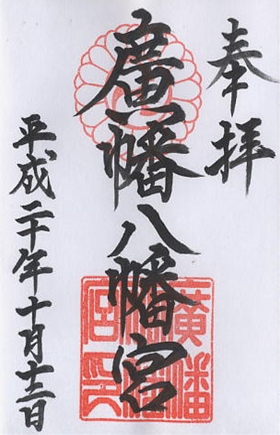 奉拝
廣幡八幡宮
平成二十年十月十二日
廣幡
宮印